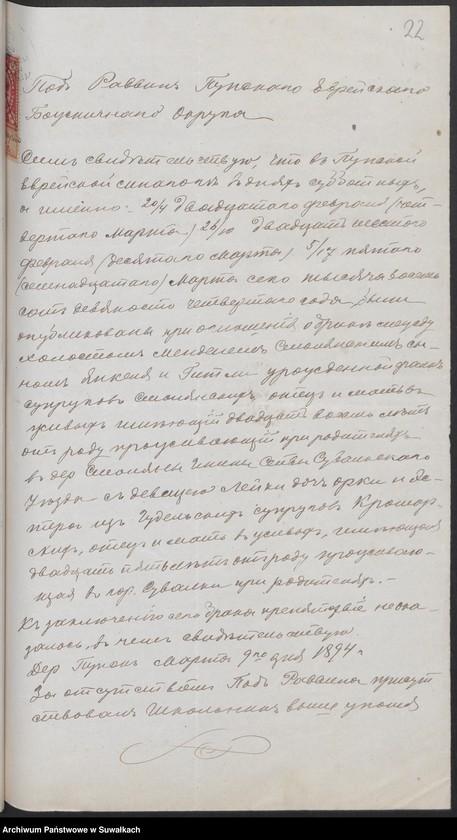 22
Подъ Раввинъ Пунскаго Еврейскаго
Божничнаго Округа
Симъ свидѣтельствую, что въ Пунской
Еврейской синагогѣ въ дняхъ субботныхъ,
а именно: 20/4 двадцатаго февраля (чет-
вертаго Марта) 26/10 двадцать шестого
февраля (десятаго Марта) 5/17 пятаго
(семнадцатаго) Марта сего тысяча восемь
сотъ девяносто четвертаго года были
опубликованы приглашенія о бракѣ между
холостымъ Менделемъ сы-
номъ Янкеля и Гитли урожденной
супруговъ отецъ и мать въ
живыхъ имѣющій двадцать восемь лѣтъ
отъ роду проживающій при родителяхъ
въ дер Гмины Сувалкскаго
Уѣзда съ девицею Лейки дочь Орки и Эс-
теры изъ супруговъ
отецъ и мать въ живыхъ, имѣющая
двадцать пять лѣтъ отъ роду прожива-
щая въ гор. Сувалки при родителяхъ. –
Къ заключенію сего брака препятствіе неока-
залось, въ чемъ свидѣтельствую.
Дер Пунскъ Марта 9го дня 1894 г
За отсутствіемъ Подъ Раввина присут
ствовалъ Школьникъ выше
Archiwum Państwowe w Suwałkach